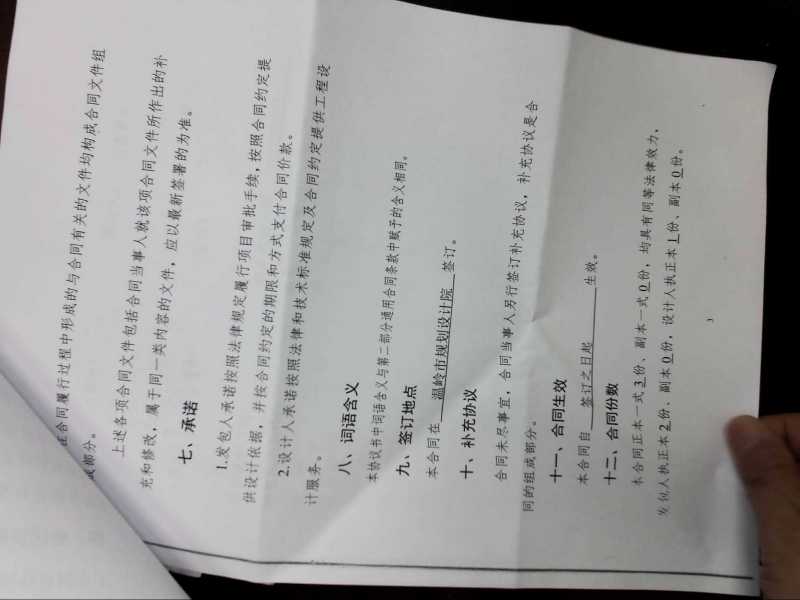 在合同履行过程中形成的与合同有关的文件均构成合同文件组
成部分。
上述各项合同文件包括合同当事人就该项合同文件所作出的补
充和修改，属于同一类内容的文件，应以最新签署的为准。
七、承诺
1.发包人承诺按照法律规定履行项目审批手续，按照合同约定提
供设计依据，并按合同约定的期限和方式支付合同价款。
2.设计人承诺按照法律和技术标准规定及合同约定提供工程设
计服务。
八、词语含义
本协议书中词语含义与第二部分通用合同条款中赋予的含义相同。
九、签订地点
本合同在 温岭市规划设计院 签订。
十、补充协议
合同未尽事宜，合同当事人另行签订补充协议，补充协议是合
同的组成部分。
十一、合同生效
本合同自 签订之日起 生效。
十二、合同份数
本合同正本一式3份、副本一式0份，均具有同等法律效力，
发包人执正本2份、副本0份，设计人执正本1份、副本0份。
3